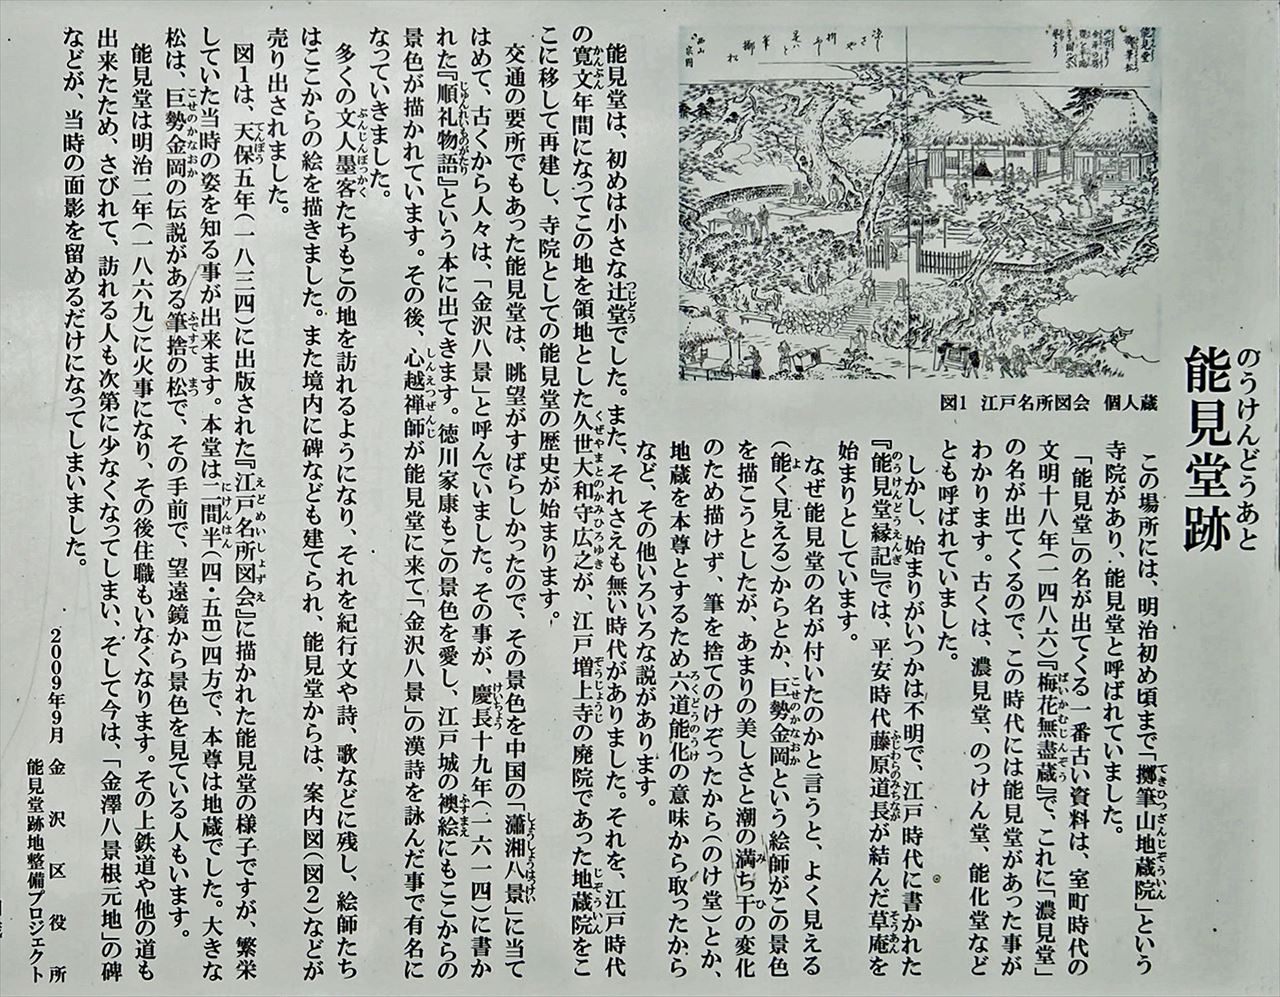 のうけんどうあと
能見堂跡
この場所には、明治初め頃まで「擲筆山地蔵院」という
寺院があり、能見堂と呼ばれていました。
「能見堂」の名が出てくる一番古い資料は、室町時代の
文明十八年(一四八六)『梅花無盡蔵』で、これに「濃見堂」
の名が出てくるので、この時代には能見堂があった事が
わかります。古くは、濃見堂、のっけん堂、能化堂など
とも呼ばれていました。
しかし、始まりがいつかは不明で、江戸時代に書かれた
『能見堂縁記』では、平安時代藤原道長が結んだ草庵を
始まりとしています。
なぜ能見堂の名が付いたのかと言うと、よく見える
(能く見える)からとか、巨勢金岡という絵師がこの景色
を描こうとしたが、あまりの美しさと潮の満ち干の変化
のため描けず、筆を捨てのけぞったから(のけ堂)とか、
地蔵を本尊とするため六道能化の意味から取ったから
など、その他いろいろな説があります。
図1 江戸名所図会 個人蔵
能見堂は、初めは小さな辻堂でした。また、それさえも無い時代がありました。それを、江戸時代
の寛文年間になってこの地を領地とした久世大和守広之が、江戸増上寺の廃院であった地蔵院をこ
こに移して再建し、寺院としての能見堂の歴史が始まります。
交通の要所でもあった能見堂は、眺望がすばらしかったので、その景色を中国の「瀟湘八景」に当て
はめて、古くから人々は、「金沢八景」と呼んでいました。その事が、慶長十九年(一六一四)に書か
れた『順礼物語』という本に出てきます。徳川家康もこの景色を愛し、江戸城の襖絵にもここからの
景色が描かれています。その後、心越禅師が能見堂に来て「金沢八景」の漢詩を詠んだ事で有名に
なっていきました。
多くの文人墨客たちもこの地を訪れるようになり、それを紀行文や詩、歌などに残し、絵師たち
はここからの絵を描きました。また境内に碑なども建てられ、能見堂からは、案内図(図2)などが
売り出されました。
図1は、天保五年(一八三四)に出版された『江戸名所図会』に描かれた能見堂の様子ですが、繁栄
していた当時の姿を知る事が出来ます。本堂は二間半(四・五m)四方で、本尊は地蔵でした。大きな
松は、巨勢金岡の伝説がある筆捨の松で、その手前で、望遠鏡から景色を見ている人もいます。
能見堂は明治二年(一八六九)に火事になり、その後住職もいなくなります。その上鉄道や他の道も
出来たため、さびれて、訪れる人も次第に少なくなってしまい、そして今は、「金澤八景根元地」の碑
などが、当時の面影を留めるだけになってしまいました。
2009年9月 金沢区役所
能見堂跡地整備プロジェクト